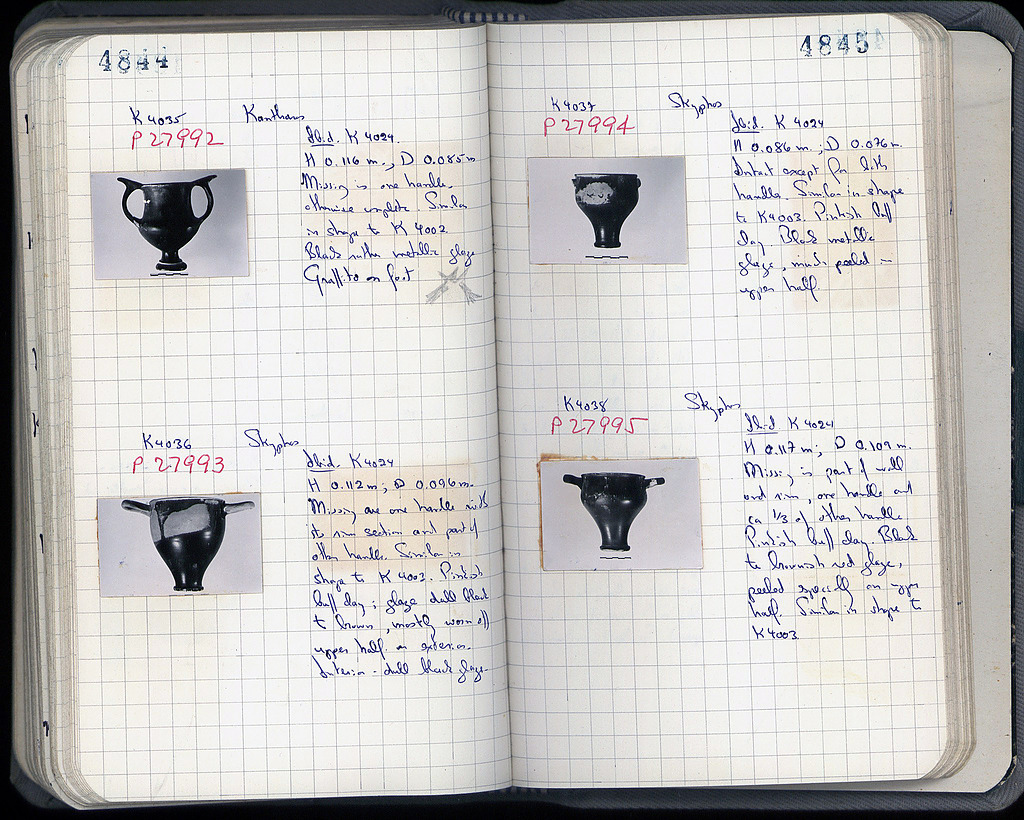 4844
K4035 Kantharos
P 27992
Ibid. K 4024.
H 0.116 m. ; D 0.085 m
Missing is one handle,
otherwise complete. Similar
in shape to K 4002.
Black rather metallic glaze
Graffito on foot
K4036 Skyphos
P 27993
Ibid. K4024
H 0.112 m; D 0.096 m.
Missing are one handle with
its rim section and part of
other handle. Similar in
shape to K 4003. Pinkish
buff clay; glaze dull black
to brown, mostly worn off
upper half on exterior.
Interior - dull black glaze.
4845
K4037 Skyphos
P 27994
Ibid. K 4024
H 0.086 m. ; D 0.076 m.
Intact except for both
handles. Similar in shape
to K4003. Pinkish buff
clay. Black metallic
glaze, much peeled in
upper half.
K4038 Skyphos
P 27995
Ibid K 4024
H 0.117 m; D 0.109 m.
Missing is part of wall
and rim, one handle and
ca 1/3 of other handle.
Pinkish buff clay. Black
to brownish red glaze,
peeled specially on upper
half. Similar in shape to
K4003